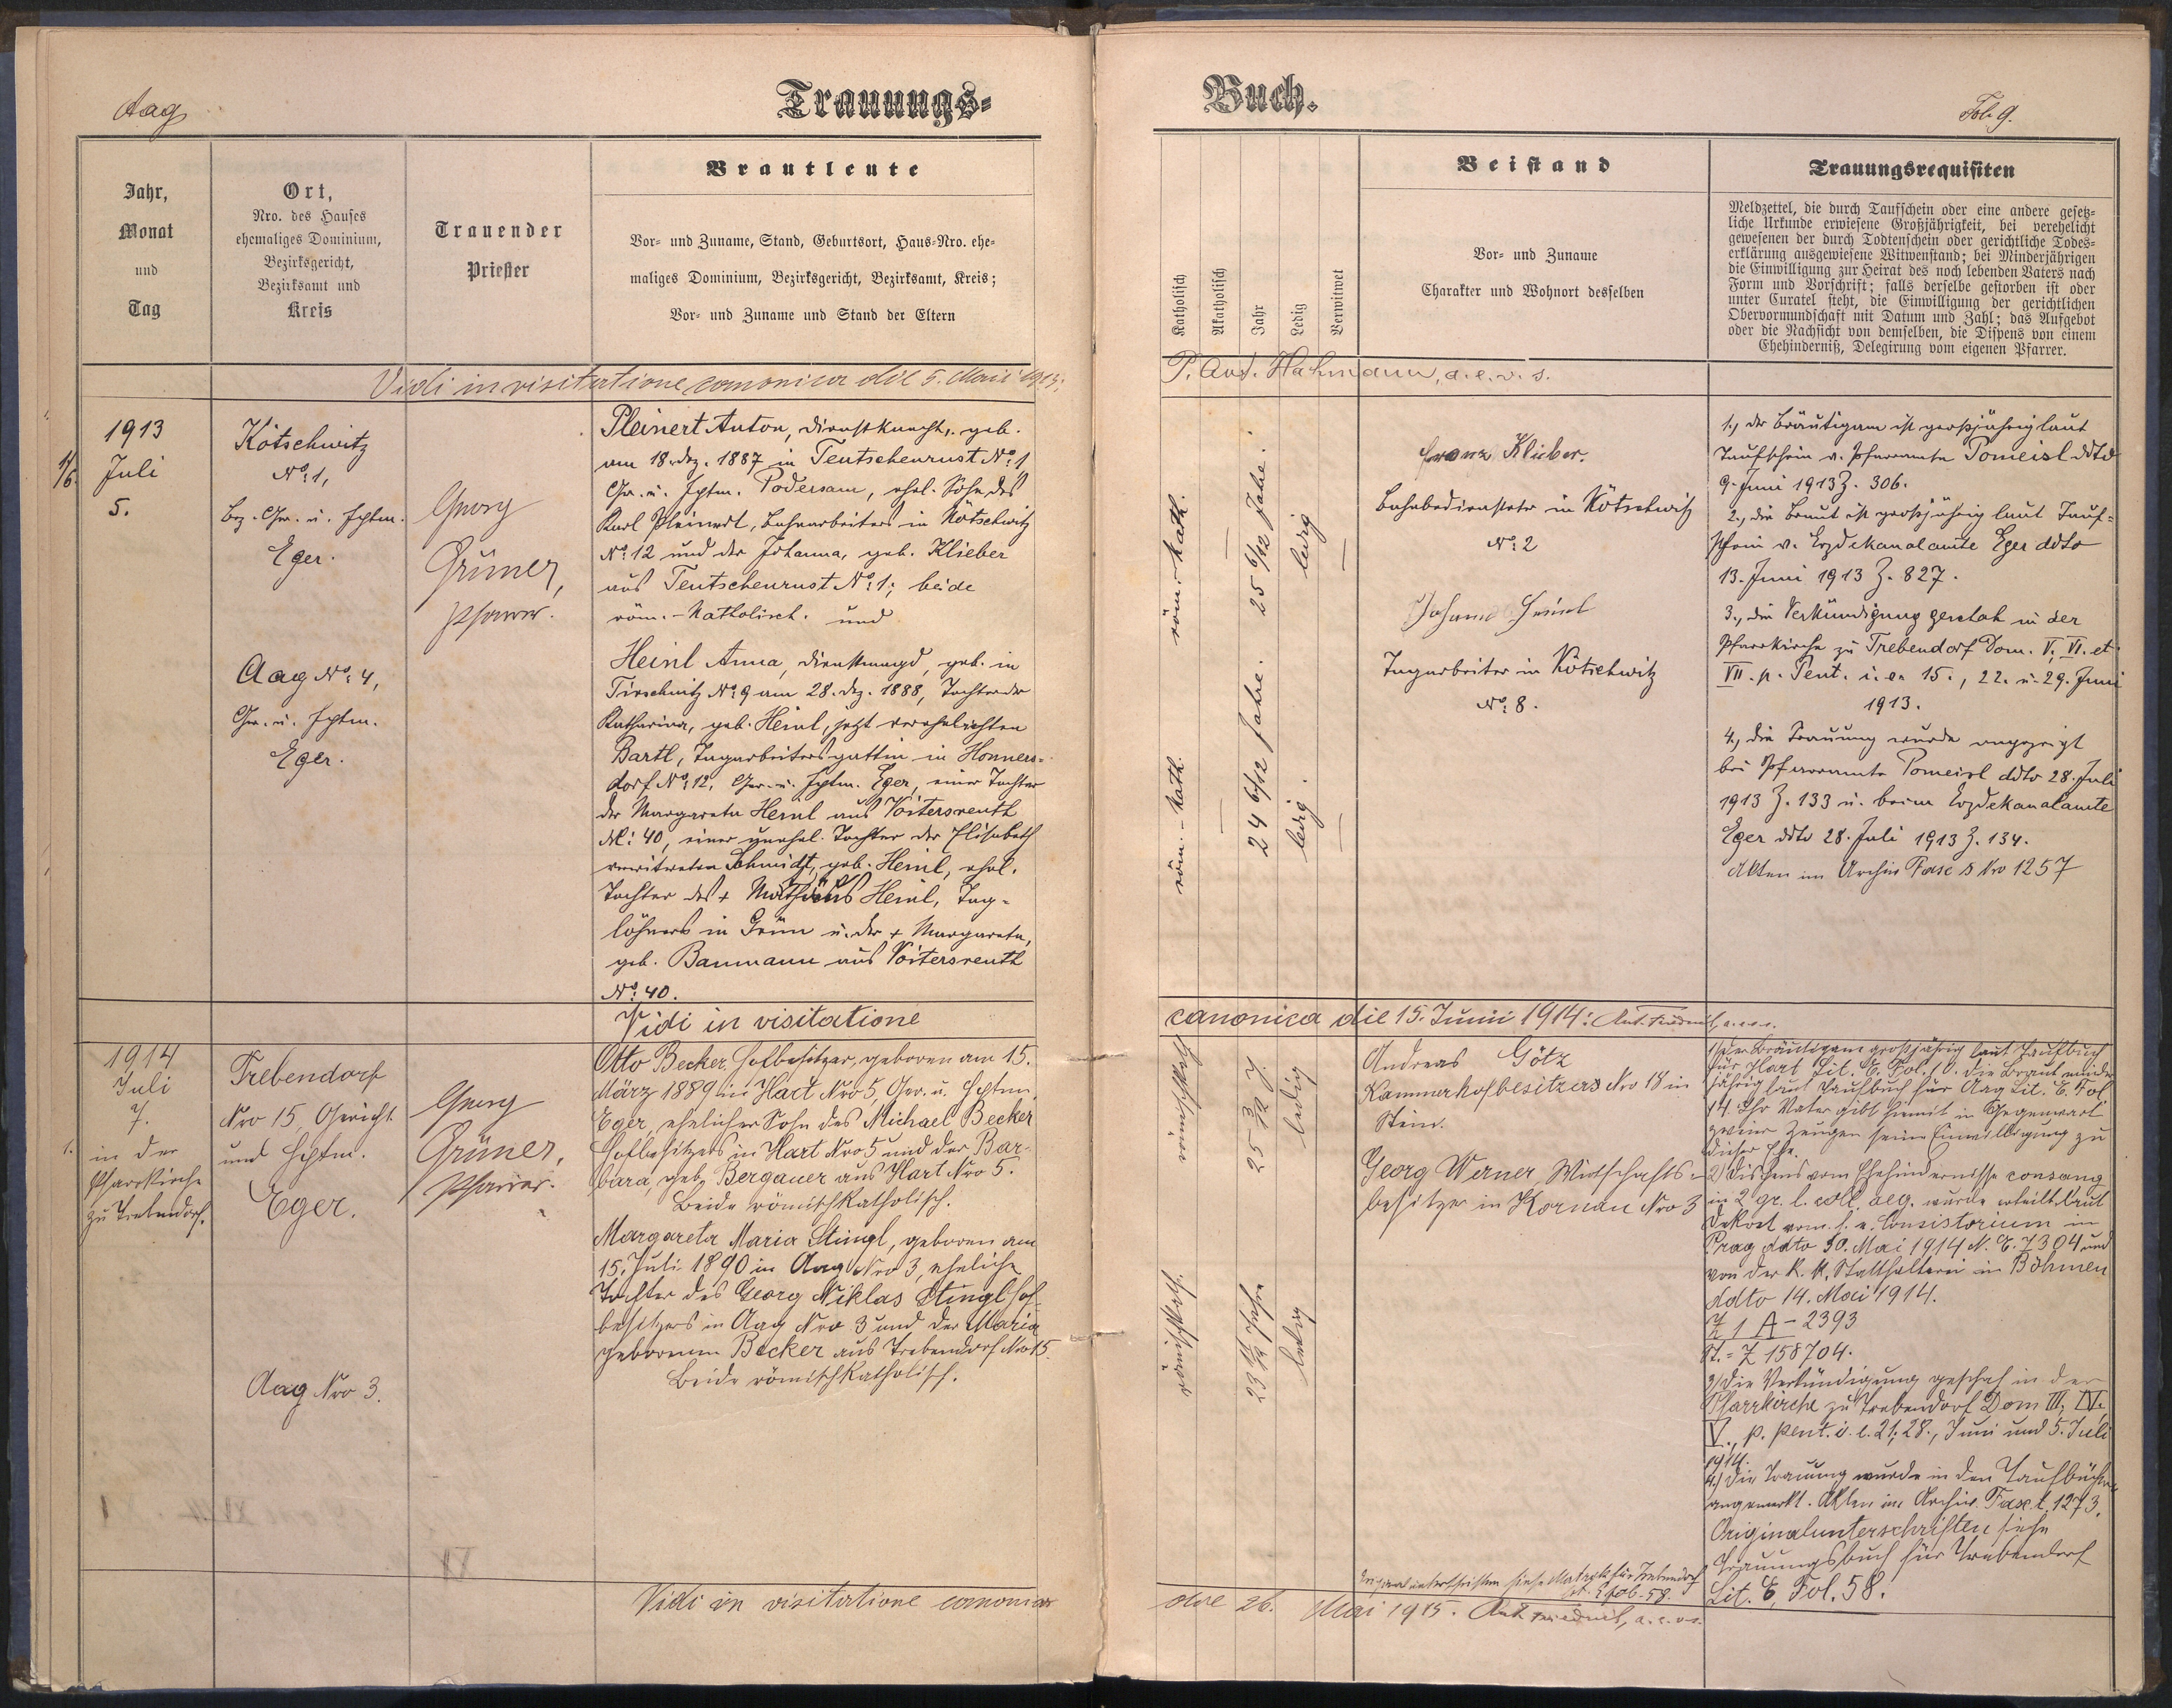 Aag
Trauungs-
Jahr,
Monat
und
Tag
Ort,
Nro. des Hauses
ehemaliges Dominium,
Bezirksgericht,
Bezirksamt und
Kreis
Trauender
Priester
Brautleute
Vor- und Zuname, Stand, Geburtsort, Haus-Nro. ehe-
maliges Dominium, Bezirksgericht, Bezirksamt, Kreis;
Vor- und Zuname und Stand der Eltern
Vidi in visitatione canonica die 5. Maii 1913;
1913
Juli
5.
Kötschwitz
No: 1,
Bez. Ger. u. Hptm.
Eger.
Aag No: 4,
Ger. u. Hptm.
Eger.
Georg
Grüner,
Pfarrer.
Pleinert Anton, Dienstknecht, geb.
am 18. Dez. 1887 in Teutschenrust No: 1,
Ger. u. Hptm. Podersam, ehel. Sohn des
Karl Pleinert, Bahnarbeiters in Kötschwitz
No: 12 und der Johanna, geb. Klieber
aus Teutschenrust No: 1; beide
röm.-katholisch. und
Heinl Anna, Dienstmagd, geb. in
Tirschnitz No: 9 am 28. Dez. 1888, Tochter der
Katharina, geb. Heinl, jetzt verehelichten
Bartl, Tagarbeitersgattin in Honners-
dorf No: 12, Ger. u. Hptm. Eger, einer Tochter
der Margareta Heinl aus Voitersreuth
No: 40, einer unehel. Tochter der Elisabeth
verwitweten Schmidt, geb. Heinl, ehel.
Tochter des + Mathäus Heinl, Tag-
löhners in Grün u. der + Margareta,
geb. Baumann aus Voitersreuth
No: 40.
Vidi in visitatione
1914
Juli
7.
in der
Pfarrkirche
zu Trebendorf.
Trebendorf
Nro 15, Gericht
und Hptm.
Eger.
Aag Nro 3.
Georg
Grüner,
Pfarrer.
Otto Becker, Hofbesitzer, geboren am 15.
März 1889 in Hart Nro 5, Ger. u. Hptm.
Eger, ehelicher Sohn des Michael Becker
Hofbesitzers in Hart Nro 5 und der Bar-
bara, geb. Bergauer aus Hart Nro 5.
Beide römischkatholisch.
Margareta Maria Stingl, geboren am
15. Juli 1890 in Aag Nro 3, eheliche
Tochter des Georg Niklas Stingl Hof-
besitzers in Aag Nro 3 und der Maria
geborenen Becker aus Trebendorf Nro 15.
Beide römischkatholisch.
Vidi in visitatione canonica
Buch.
Fol. 9.
Katholisch
Akatholisch
Jahr
Ledig
Verwitwet
Beistand
Vor- und Zuname
Charakter und Wohnort desselben
Trauungsrequisiten
Meldzettel, die durch Taufschein oder eine andere gesetz-
liche Urkunde erwiesene Großjährigkeit, bei verehelicht
gewesenen der durch Todtenschein oder gerichtliche Todes-
erklärung ausgewiesene Witwenstand; bei Minderjährigen
die Einwilligung zur Heirat des noch lebenden Vaters nach
Form und Vorschrift; falls derselbe gestorben ist oder
unter Curatel steht, die Einwilligung der gerichtlichen
Obervormundschaft mit Datum und Zahl; das Aufgebot
oder die Nachsicht von demselben, die Dispens von einem
Ehehinderniß, Delegirung vom eigenen Pfarrer.
P. Ant. Hahmann, a.e.v.s.
röm.-kath.
25 6/12 Jahre.
ledig
röm.-kath.
24 6/12 Jahre.
ledig.
Franz Klieber.
Bahnbediensteter in Kötschwitz
No: 2
Johann Heinl
Tagarbeiter in Kötschwitz
No: 8.
1., der Bräutigam ist großjährig laut
Taufschein v. Pfarramte Pomeisl ddto
9. Juni 1913 Z. 306.
2., die Braut ist großjährig laut Tauf-
schein v. Erzdekanalamte Eger ddto
13. Juni 1913 Z. 827.
3., die Verkündigung geschah in der
Pfarrkirche zu Trebendorf Dom. V., VI. et
VII. p. Pent. i. e. 15., 22. u. 29. Juni
1913.
4., die Trauung wurde angezeigt
bei Pfarramte Pomeisl ddto 28. Juli
1913 Z. 133 u. beim Erzdekanalamte
Eger ddto 28. Juli 1913 Z. 134.
Akten im Archiv Fasc s Nro 1257
canonica die 15. Junii 1914: Ant. Friedrich, a.e.v.s.
römischkath
25 3/12 J.
ledig
römischkath.
23 11/12 Jahre
ledig
Andreas Götz
Kammerhofbesitzers Nro 18 in
Stein.
Georg Werner, Wirtschafts-
besitzer in Kornau Nro 3
1) Der Bräutigam großjährig laut Taufbuch
für Hart Lit. E. Fol. 10. die Braut minder
jährig laut Taufbuch für Aag Lit. E. Fol
14. Ihr Vater gibt hiemit in Gegenwart
zweier Zeugen seine Einwilligung zu
dieser Ehe.
2) Dispens vom Ehehindernisse consang.
in 2 gr. l. coll. aeq. wurde erteilt laut
Dekret vom f. e. Consistorium in
Prag ddto 30. Mai 1914 N. E. 7304 und
von der k. k. Statthalterei in Böhmen
ddto 14. Mai 1914.
Z 1 A - 2393
St. = Z 158704.
3) Die Verkündigung geschah in der
Pfarrkirche zu Trebendorf Dom III, IV.
V., p. pent. i. e. 21., 28., Juni und 5. Juli
1914.
4.) Die Trauung wurde in den Taufbüchern
angemerkt. Akten im Archiv. Fasc. t. 1273.
Originalunterschriften siehe
Trauungsbuch für Trebendorf
Lit. E, Fol. 58.
Originalunterschriften siehe Matrik für Trebendorf
Lit. E fol. 58.
die 26. Mai 1915. Ant Friedrich, a.e.v.s.